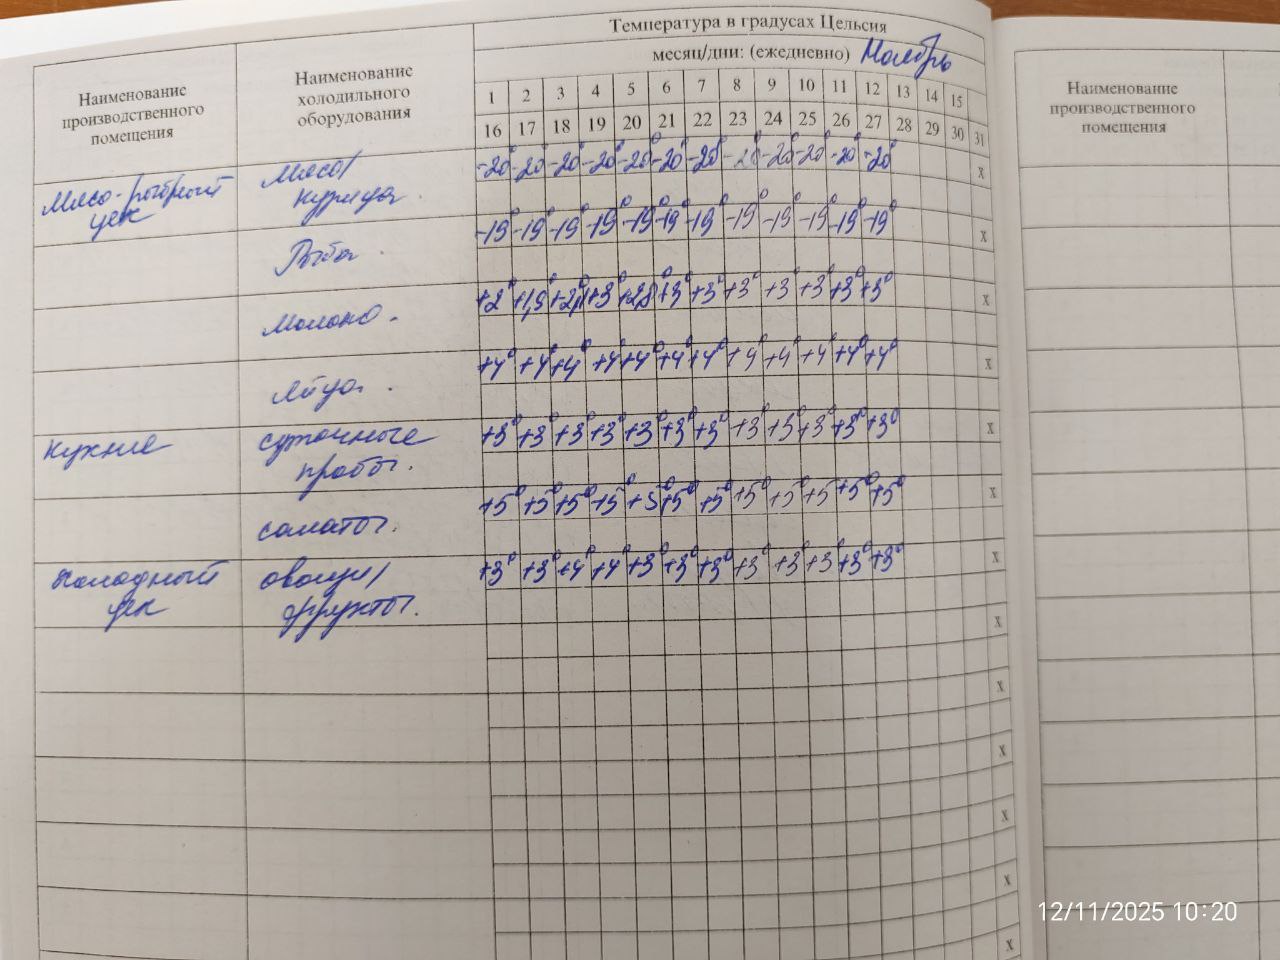 Температура в градусах Цельсия
месяц/дни: (ежедневно) Ноябрь
Наименование
производственного
помещения
Наименование
холодильного
оборудования
1 2 3 4 5 6 7 8 9 10 11 12 13 14 15
16 17 18 19 20 21 22 23 24 25 26 27 28 29 30 31
Мясо-рыбный
цех
Мясо/
курица.
-20° -20 -20° -20° -20° -20° -20° -20 -20 -20 -20° -20° х
Рыба.
-19° -19° -19° -19° -19° -19° -19° -19° -19° -19° -19° -19° х
Молоко.
+2° +1,9 +3 +3° +3° +3° +3 +3° +3° +3° х
Яйца.
+4° +4° +4° +4° +4° +4° +4° +4° +4° +4° +4° +4° х
Кухня
суточные
пробы.
+3° +3° +3° +3° +3° +3° +3° +3° +3° +3° +3° +3° х
салаты.
+5° +5° +5° +5° +5° +5° +5° +5° +5° +5 +5° +5° х
Холодный
цех
овощи/
фрукты.
+3° +3° +4° +4° +3° +3° +3° +3° +3° +3° +3° +3° х
х
х
х
х
х
х
Наименование
производственного
помещения
12/11/2025 10:20